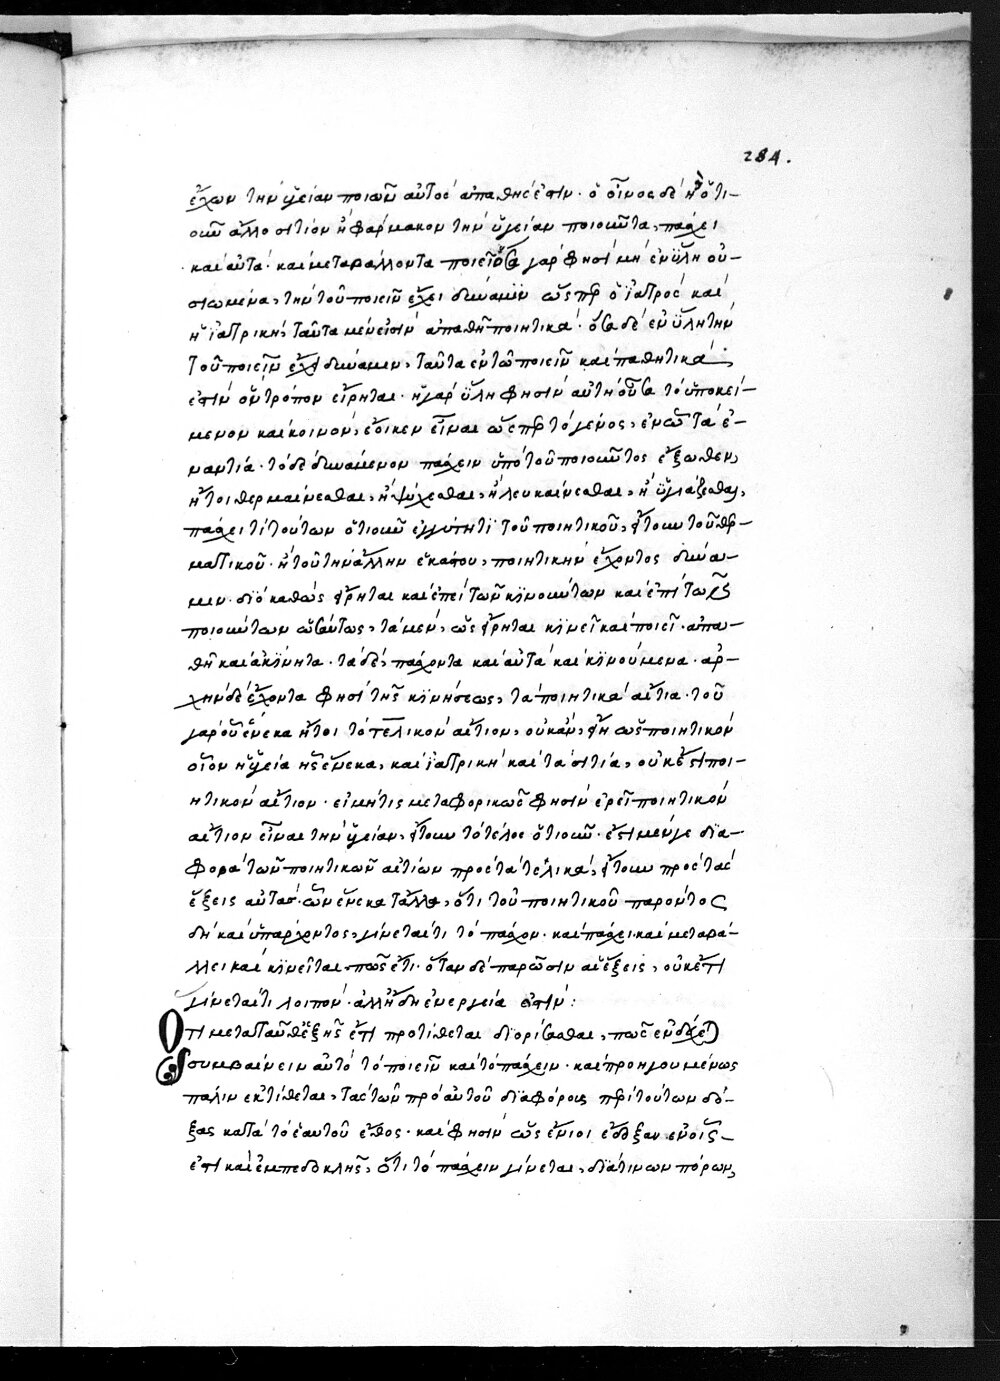 284.
ἔχων τὴν ὑγείαν ποιῶν αὐτὸς ἀπαθής ἐστιν· ὁ οἶνος δὲ ἢ ὅτι-
οῦν ἄλλο σιτίον ἢ φάρμακον τὴν ὑγείαν ποιοῦντα, πάσχει
καὶ αὐτὰ· καὶ μεταβάλλοντα ποιεῖ· ὅσα γάρ φησι μὴ ἐν ὕλῃ οὐ-
σιωμένα, τὴν τοῦ ποιεῖν ἔχει δύναμιν ὥσπερ ὁ ἰατρὸς καὶ
ἡ ἰατρικὴ, ταῦτα μέν εἰσιν ἀπαθῆ ποιητικά· ὅσα δὲ ἐν ὕλῃ τὴν
τοῦ ποιεῖν ἔχει δύναμιν, ταῦτα ἐν τῷ ποιεῖν καὶ παθητικά
ἐστιν ὃν τρόπον εἴρηται· ἡ γὰρ ὕλη φησὶν αὐτὴ οὖσα τὸ ὑποκεί-
μενον καὶ κοινὸν, ἔοικεν εἶναι ὥσπερ τὸ γένος, ἐν ᾧ τὰ ἐ-
ναντία· τὸ δὲ δυνάμενον πάσχειν ὑπὸ τοῦ ποιοῦντος ἔξωθεν,
ἤτοι θερμαίνεσθαι, ἢ ψύχεσθαι, ἢ λευκαίνεσθαι, ἢ ὑγιάζεσθαι,
πάσχει τι τούτων ὁτιοῦν ἐγγύτητι τοῦ ποιητικοῦ, ἤτουν τοῦ θερ-
μαντικοῦ· ἢ τοῦ τὴν ἄλλην ἑκάστου, ποιητικὴν ἔχοντος δύνα-
μιν· διὸ καθὼς εἴρηται καὶ ἐπεὶ τῶν κινούντων καὶ ἐπὶ τῶν
ποιούντων ὡσαύτως, τὰ μὲν, ὡς εἴρηται κινεῖ καὶ ποιεῖ· ἀπα-
θῆ καὶ ἀκίνητα· τὰ δὲ, πάσχοντα καὶ αὐτὰ καὶ κινούμενα· ἀρ-
χὴν δὲ ἔχοντα φησὶ τῆς κινήσεως, τὰ ποιητικὰ αἴτια· τοῦ
γὰρ οὗ ἕνεκα ἤτοι τὸ τελικὸν αἴτιον, οὐκ ἂν εἴη ὡς ποιητικὸν
οἷον ἡ ὑγεία ἧς ἕνεκα, καὶ ἰατρικὴ καὶ τὰ σιτία, οὐκ ἔστι ποι-
ητικὸν αἴτιον· εἰ μήτις μεταφορικῶς φησὶν ἐρεῖ ποιητικὸν
αἴτιον εἶναι τὴν ὑγείαν, ἤτουν τὸ τέλος ὁτιοῦν· ἔστι μέν γε δια-
φορὰ τῶν ποιητικῶν αἰτίων πρὸς τὰ τελικά, ἤτουν πρὸς τὰς
ἕξεις αὐτὰς· ὧν ἕνεκα τἄλλα, ὅτι τοῦ ποιητικοῦ παρόντος
δὴ καὶ ὑπάρχοντος, γίνεταί τι τὸ πάσχον· καὶ πάσχει καὶ μεταβά-
λλει καὶ κινεῖται πῶς ἔτι· ὅταν δὲ παρῶσιν αἱ ἕξεις, οὐκέτι
γίνεταί τι λοιπὸν· ἀλλ' ἤδη ἐνεργεία ἐστίν:
Ὅτι μετὰ ταῦθ' ἑξῆς ἔτι προτίθεται διορίσασθαι, πῶς ἐνδέχεται
συμβαίνειν αὐτὸ τὸ ποιεῖν καὶ τὸ πάσχειν· καὶ προηγουμένως
πάλιν ἐκτίθεται, τὰς τῶν πρὸ αὐτοῦ διαφόρους περὶ τούτων δό-
ξας κατὰ τὸ ἑαυτοῦ ἔθος· καὶ φησὶν ὡς ἔνιοι ἔδοξαν ἐν οἷς
ἐστι καὶ ἐμπεδοκλῆς, ὅτι τὸ πάσχειν γίνεται, διά τινων πόρων,